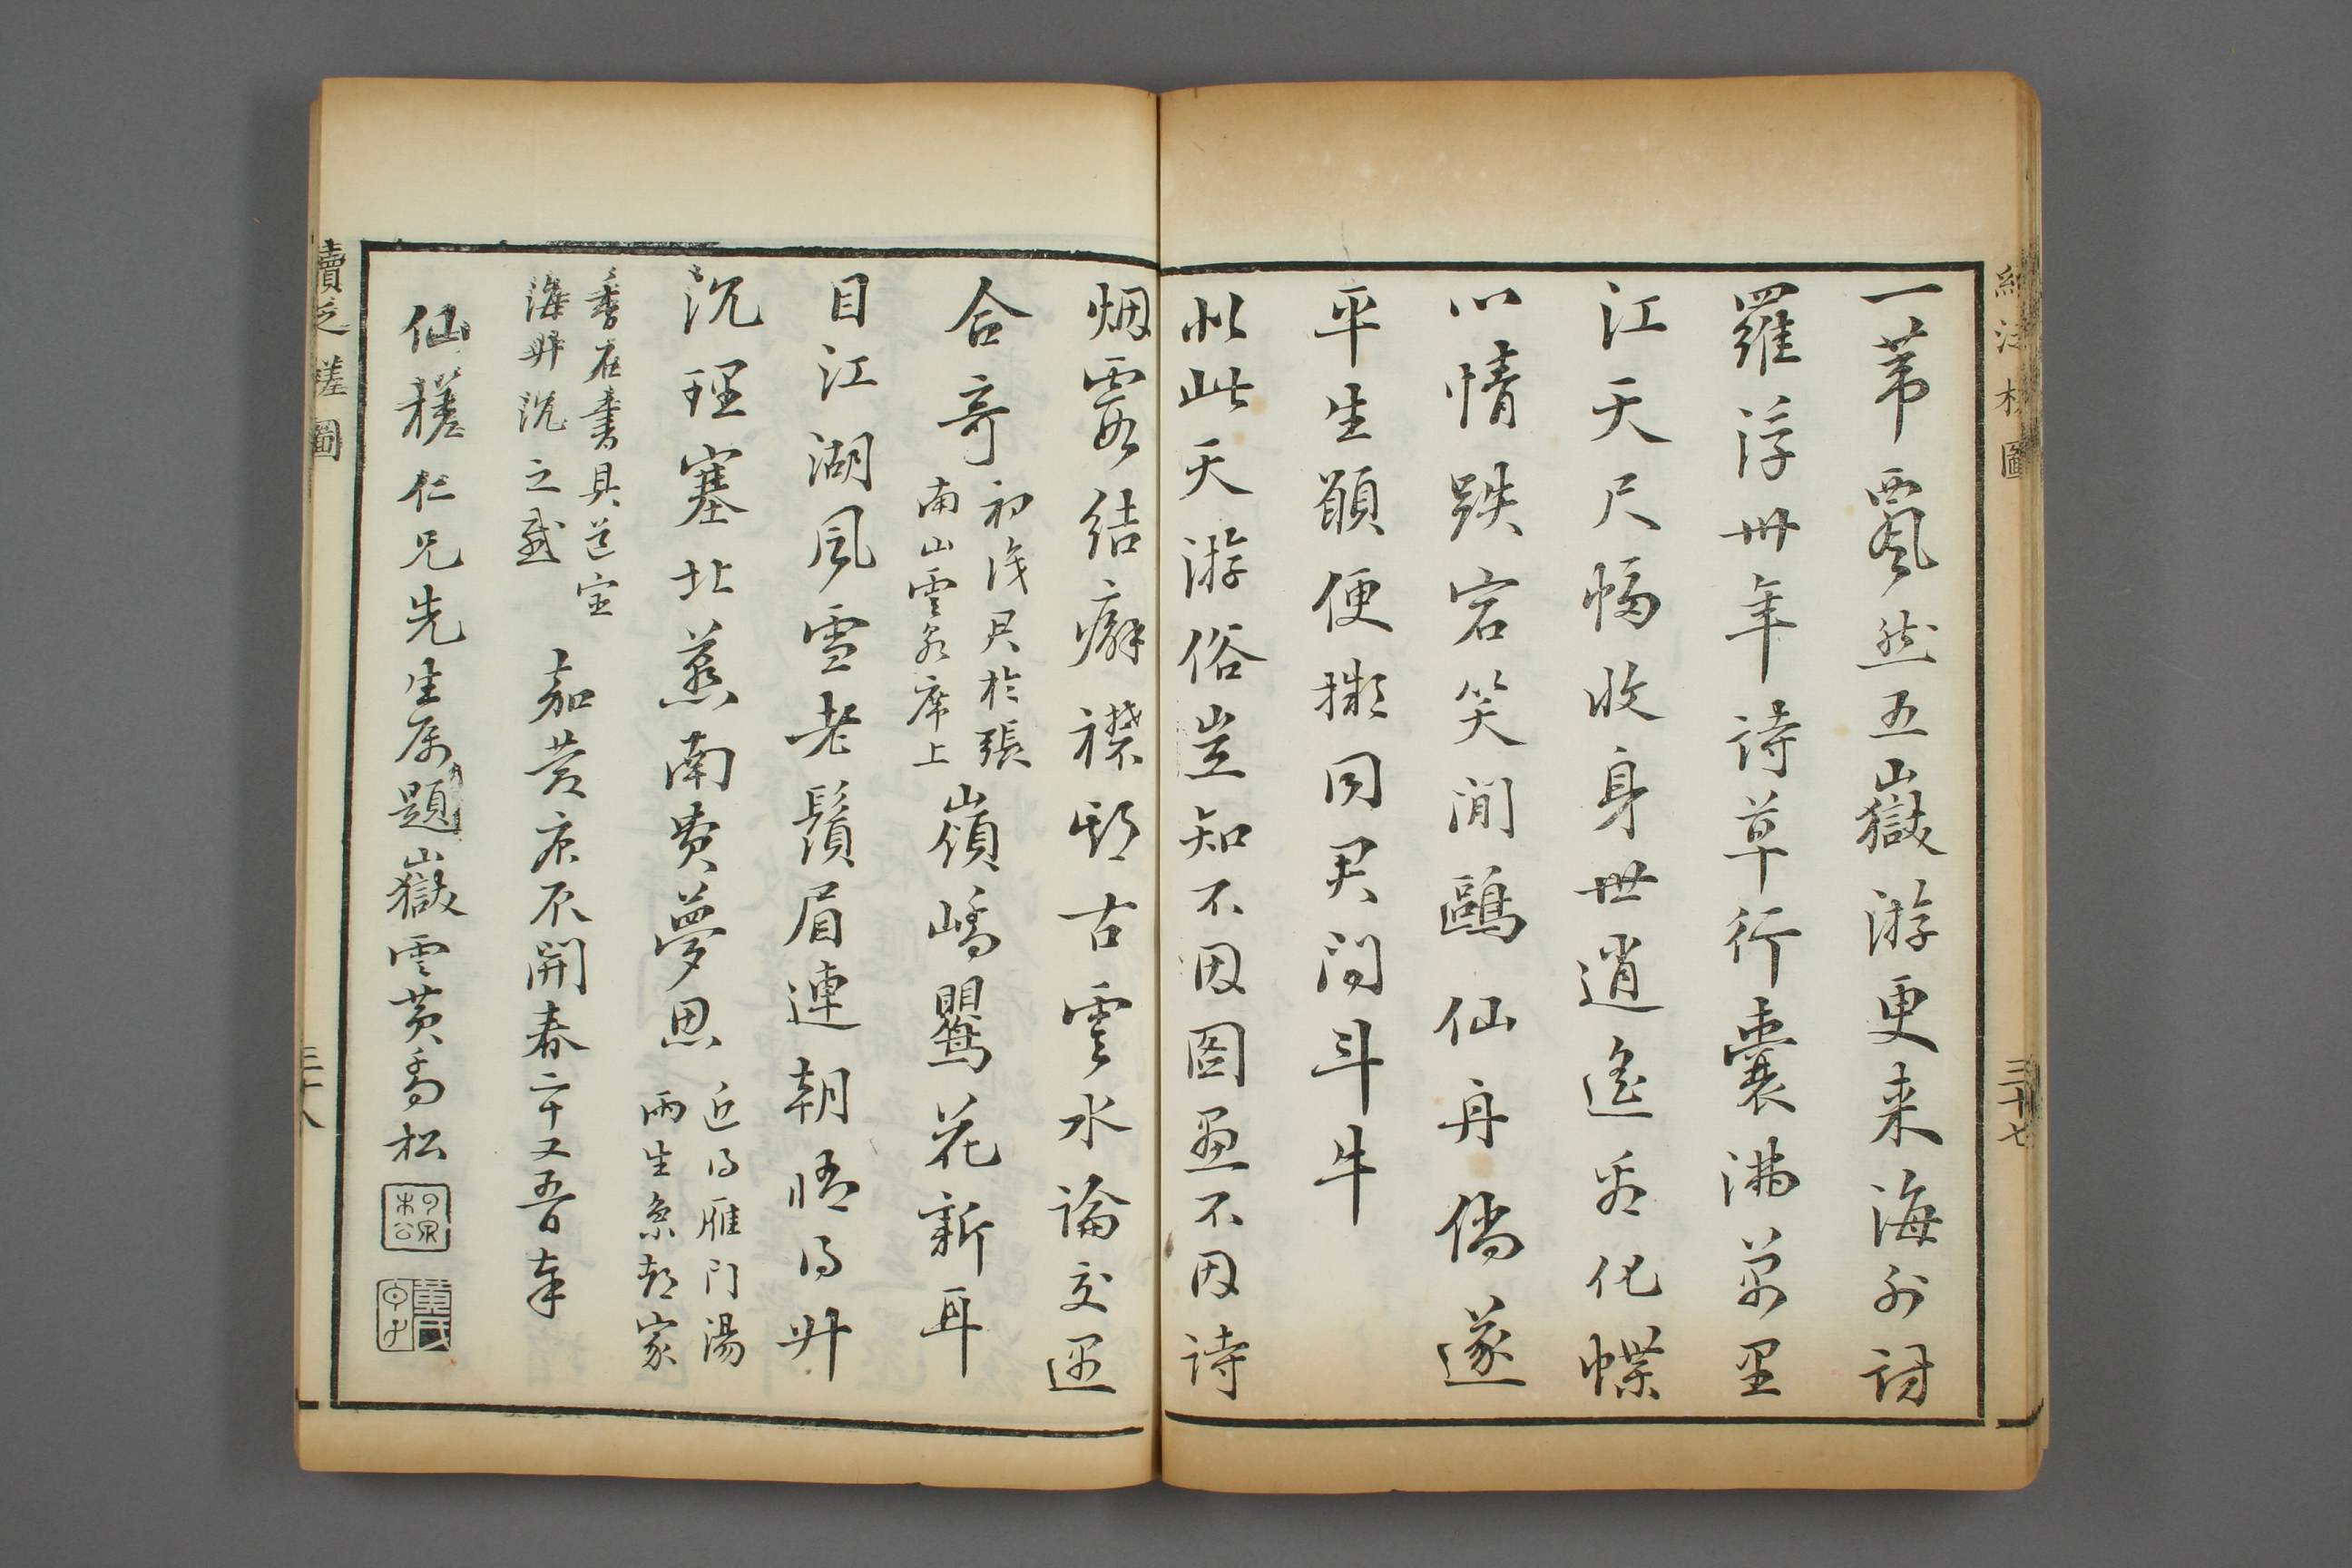 一葦飄然五嶽游更来海外詩
羅浮卅年詩草行囊滿万里
江天尺幅收身世逍遙希化蝶
心情跌宕笑閒鷗仙舟倘遂
平生願便擬同君問斗牛
似此天游俗豈知不因圖畫不因詩
烟霞結癖襟期古雲水論交遇
合奇
初識君於張
南山雲泉席上
嶺嶠鶯花新耳
目江湖風雪老鬚眉連朝悟得升
沉理塞北燕南費夢思
近得雁门湯
雨生奚都家
香石書具道宦
海升沉之感
嘉慶庚辰開春二十又五日奉
仙槎仁兄先生属題嶽雲黄喬松
續泛槎圖
三十八
續泛槎圖
三十七